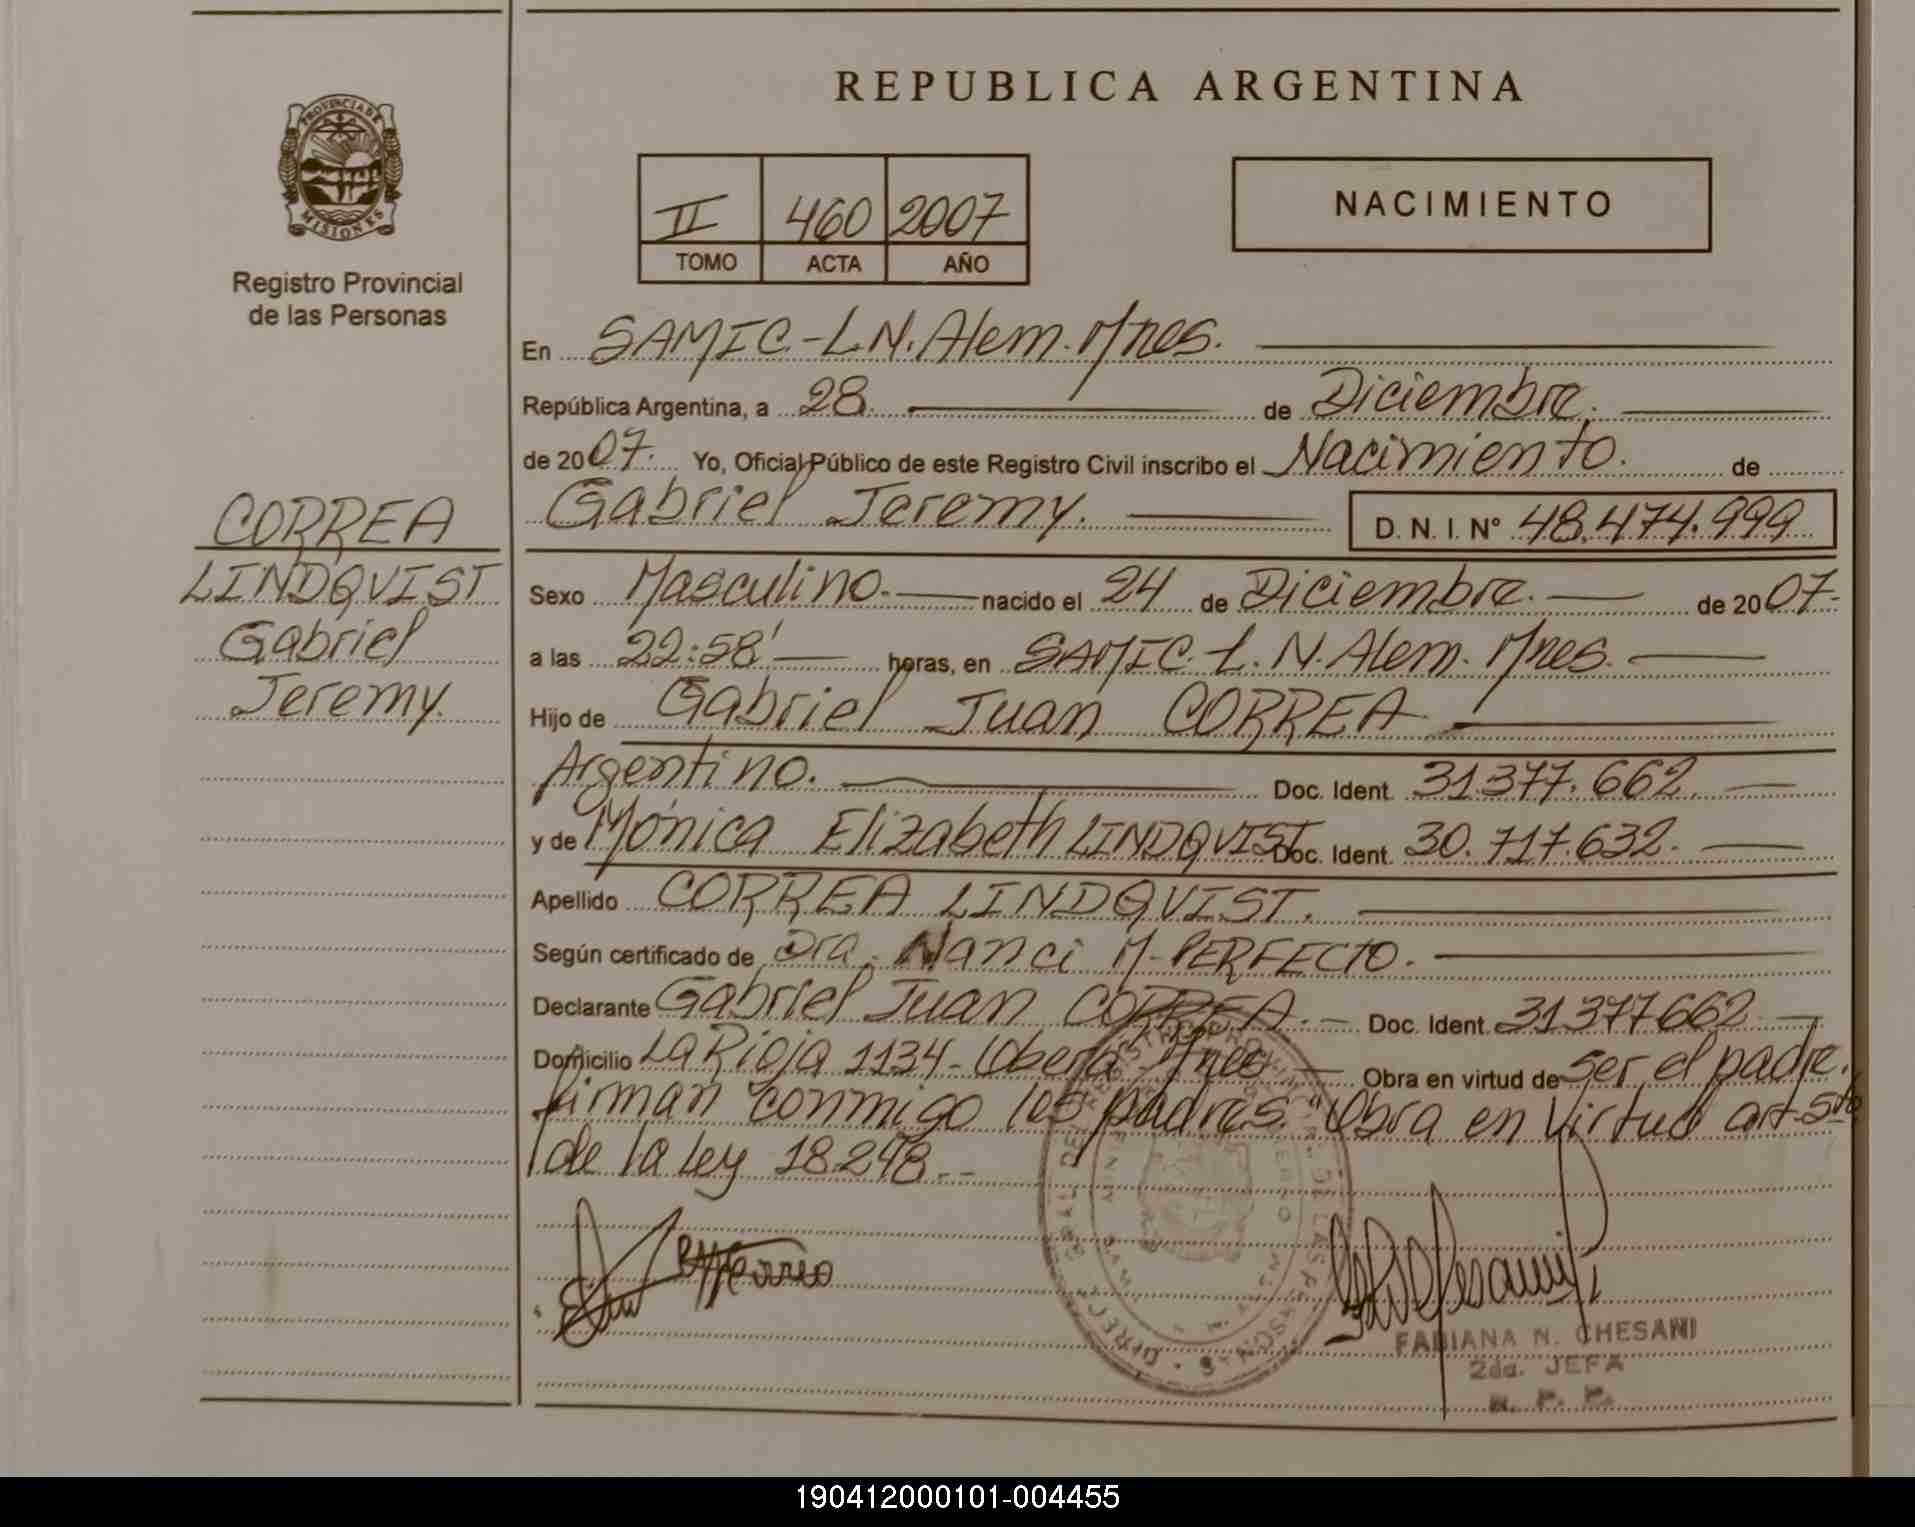 REPUBLICA ARGENTINA
PROVINCIA DE MISIONES
Registro Provincial
de las Personas
II 460 2007
TOMO ACTA AÑO
NACIMIENTO
En SAMIC-L.N.Alem.Mnes.
República Argentina, a 28. de Diciembre.
de 2007. Yo, Oficial Público de este Registro Civil inscribo el Nacimiento. de
Gabriel Jeremy. D. N. I. Nº 48.474.999
CORREA
LINDQVIST
Gabriel
Jeremy.
Sexo Masculino. nacido el 24 de Diciembre. de 2007.
a las 22:58' horas, en SAMIC. L. N. Alem. Mnes.
Hijo de Gabriel Juan CORREA
Argentino. Doc. Ident. 31.377.662.
y de Mónica Elizabeth LINDQVIST Doc. Ident. 30.717.632.
Apellido CORREA LINDQVIST.
Según certificado de Dra. Nanci M. PERFECTO.
Declarante Gabriel Juan CORREA. Doc. Ident. 31377662
Domicilio La Rioja 1134-Oberá-Mnes Obra en virtud de ser el padre.
firman conmigo los padres. Obra en virtud art-5to
de la ley 18.248.-
FABIANA N. CHESANI
2da. JEFA
R. P. P.
190412000101-004455